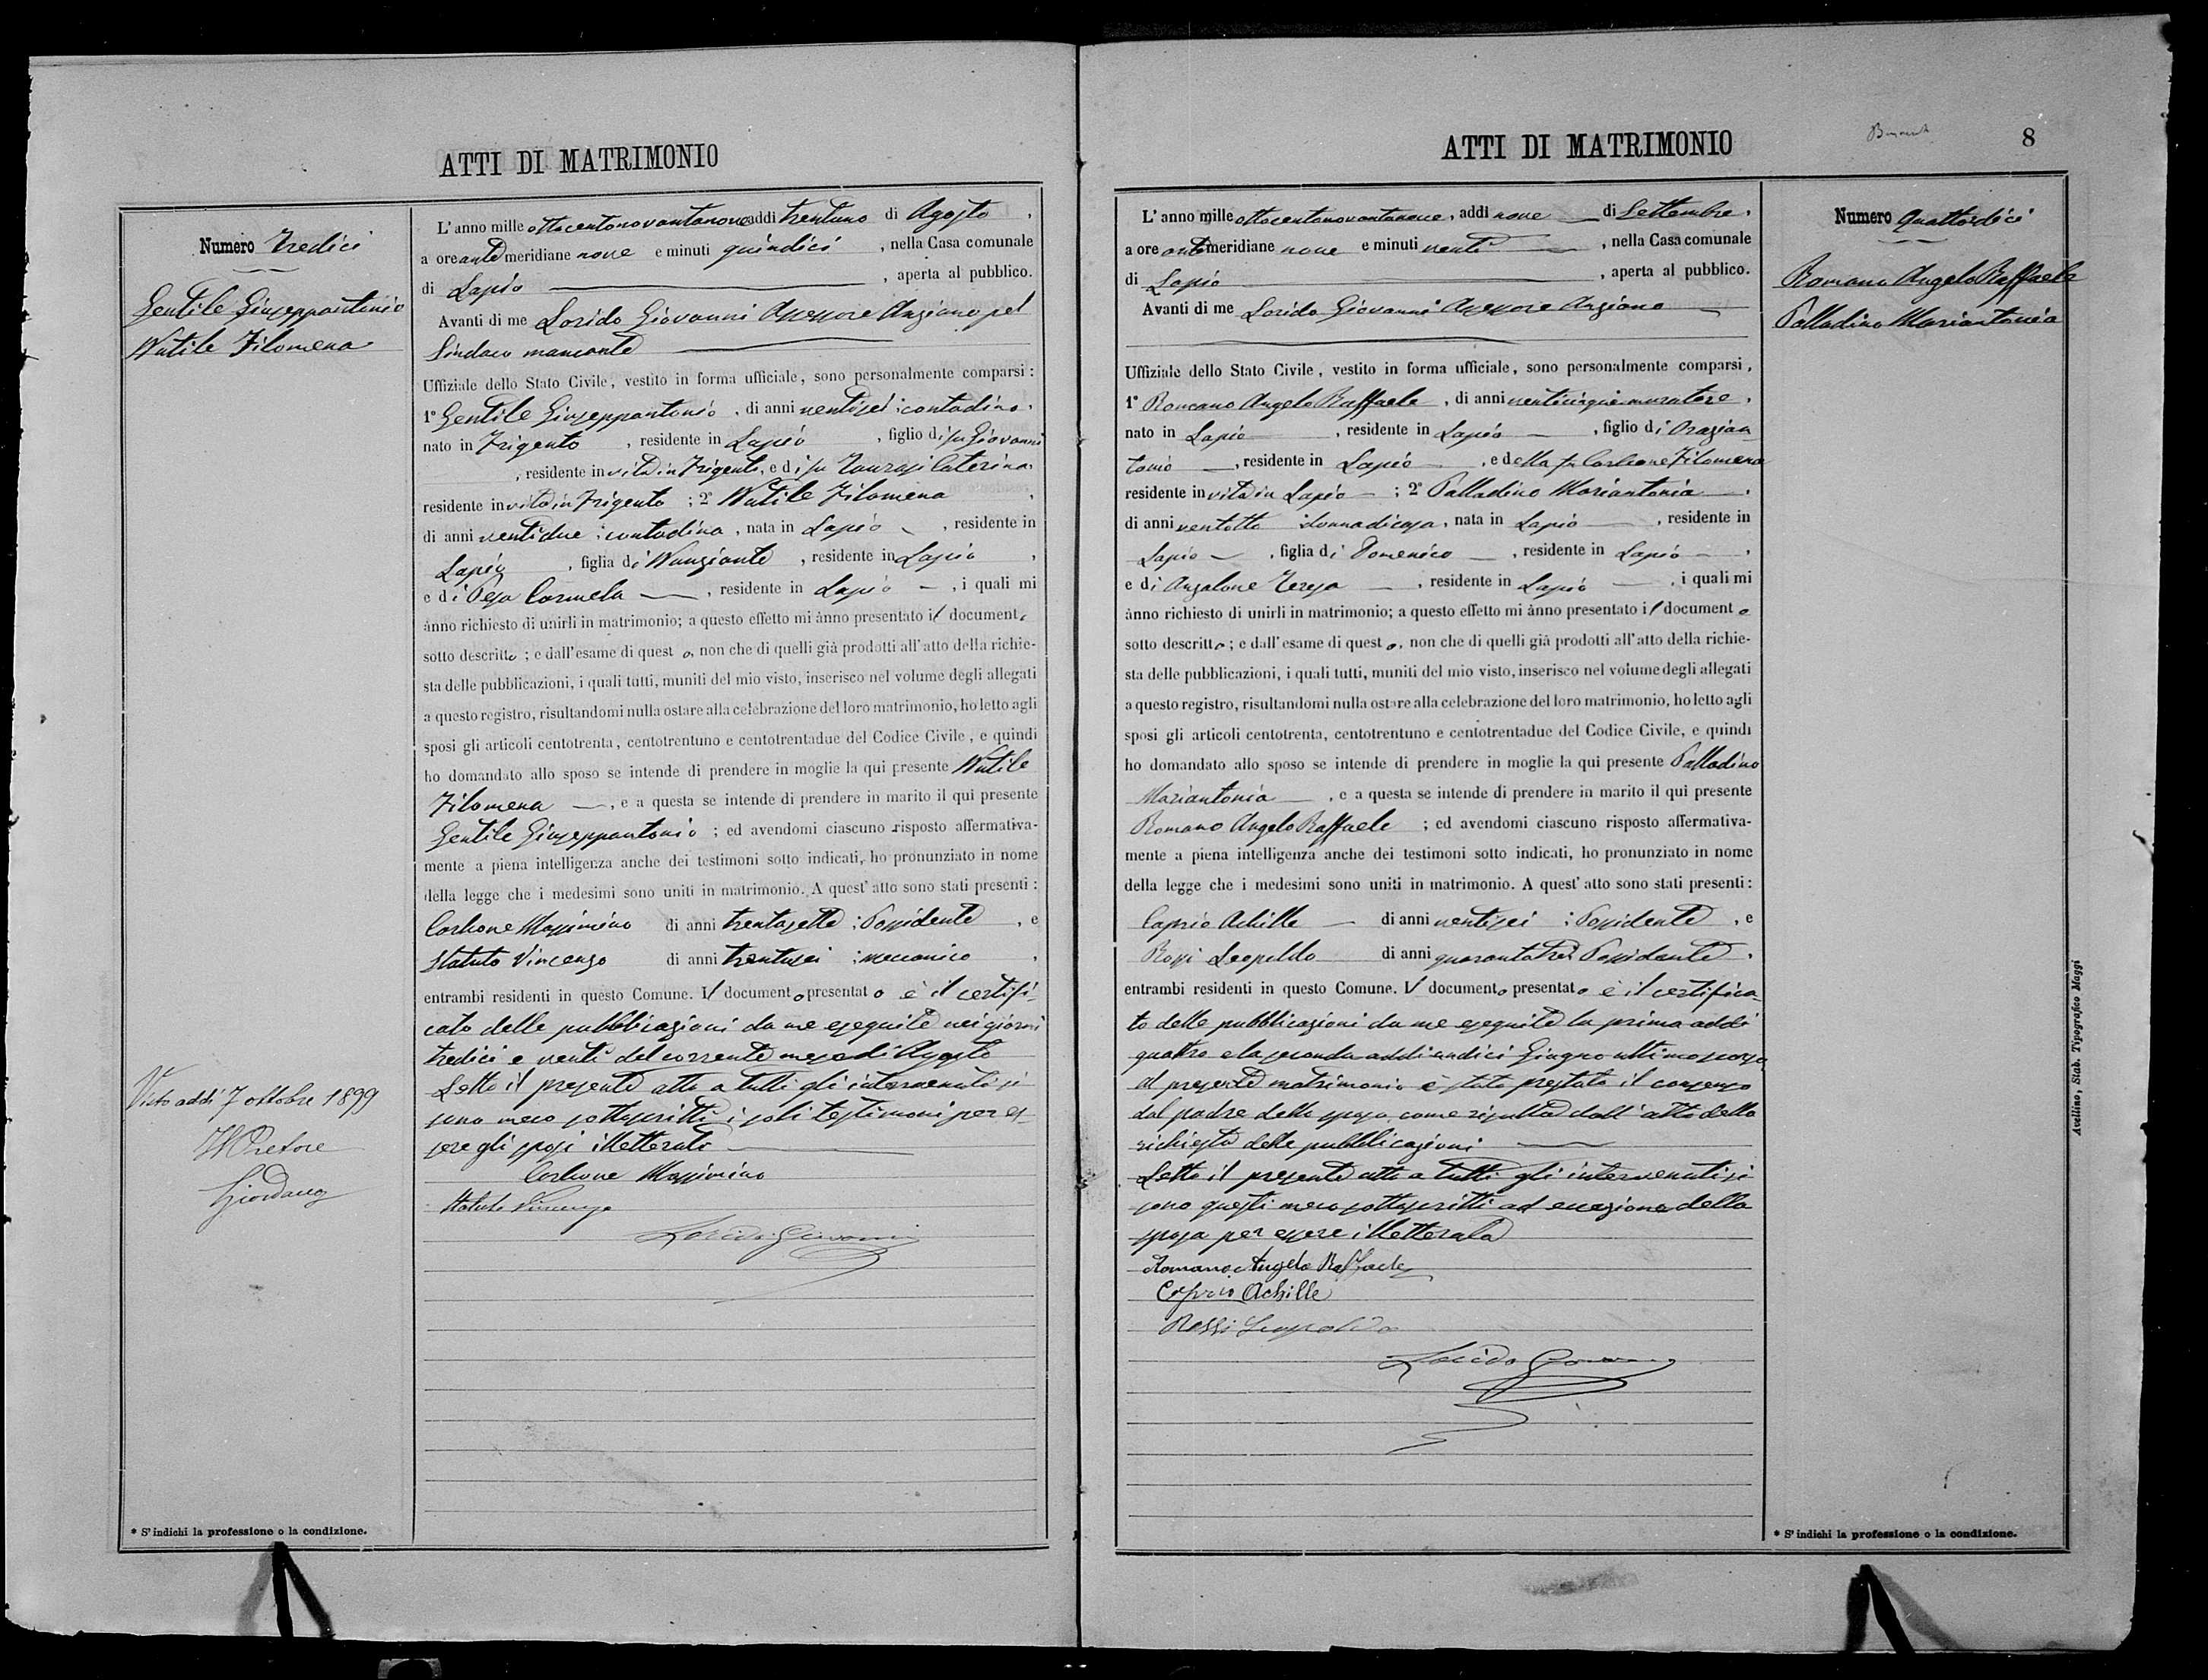 ATTI DI MATRIMONIO
Numero Tredici
Gentile Giuseppantonio
Nutile Filomena
Visto addì 7 ottobre 1899
Il Pretore
Giordano
* S'indichi la professione o la condizione.
L'anno mille ottocentonovantanove addì trentuno di Agosto,
a ore antemeridiane nove e minuti quindici, nella Casa comunale
di Lapio, aperta al pubblico.
Avanti di me Lorido Giovanni Assessore Anziano pel
Sindaco mancante
Uffiziale dello Stato Civile, vestito in forma ufficiale, sono personalmente comparsi:
1° Gentile Giuseppantonio, di anni ventisei; contadino,
nato in Frigento, residente in Lapio, figlio di fu Giovanni
, residente in vita in Frigento, e di fu Taurasi Caterina
residente in vita in Frigento; 2° Nutile Filomena,
di anni ventidue; contadina, nata in Lapio, residente in
Lapio, figlia di Nunziante, residente in Lapio,
e di Pesa Carmela, residente in Lapio, i quali mi
ànno richiesto di unirli in matrimonio; a questo effetto mi ànno presentato il documento
sotto descritto; e dall'esame di questo, non che di quelli già prodotti all'atto della richie-
sta delle pubblicazioni, i quali tutti, muniti del mio visto, inserisco nel volume degli allegati
a questo registro, risultandomi nulla ostare alla celebrazione del loro matrimonio, ho letto agli
sposi gli articoli centotrenta, centotrentuno e centotrentadue del Codice Civile, e quindi
ho domandato allo sposo se intende di prendere in moglie la qui presente Nutile
Filomena, e a questa se intende di prendere in marito il qui presente
Gentile Giuseppantonio; ed avendomi ciascuno risposto affermativa-
mente a piena intelligenza anche dei testimoni sotto indicati, ho pronunziato in nome
della legge che i medesimi sono uniti in matrimonio. A quest'atto sono stati presenti:
Carbone Massimino di anni trentasette; Possidente, e
Statuto Vincenzo di anni trentasei; meccanico,
entrambi residenti in questo Comune. Il documento presentato è il certifi-
cato delle pubblicazioni da me eseguite nei giorni
tredici e venti del corrente mese di Agosto
Letto il presente atto a tutti gli intervenuti si
sono meco sottoscritti i soli testimoni per es-
sere gli sposi illetterati
Carbone Massimino
Statuto Vincenzo
Lorido Giovanni
ATTI DI MATRIMONIO
8
L'anno mille ottocentonovantanove, addì nove di Settembre,
a ore antimeridiane nove e minuti venti, nella Casa comunale
di Lapio, aperta al pubblico.
Avanti di me Lorido Giovanni Assessore Anziano
Uffiziale dello Stato Civile, vestito in forma ufficiale, sono personalmente comparsi,
1° Romano Angelo Raffaele, di anni venticinque muratore,
nato in Lapio, residente in Lapio, figlio di Orazian-
tonio, residente in Lapio, e della fu Carbone Filomena
residente in vita in Lapio; 2° Palladino Mariantonia,
di anni ventotto; donna di casa, nata in Lapio, residente in
Lapio, figlia di Domenico, residente in Lapio,
e di Anzalone Teresa, residente in Lapio, i quali mi
ànno richiesto di unirli in matrimonio; a questo effetto mi ànno presentato il documento
sotto descritto; e dall'esame di questo, non che di quelli già prodotti all'atto della richie-
sta delle pubblicazioni, i quali tutti, muniti del mio visto, inserisco nel volume degli allegati
a questo registro, risultandomi nulla ostare alla celebrazione del loro matrimonio, ho letto agli
sposi gli articoli centotrenta, centotrentuno e centotrentadue del Codice Civile, e quindi
ho domandato allo sposo se intende di prendere in moglie la qui presente Palladino
Mariantonia, e a questa se intende di prendere in marito il qui presente
Romano Angelo Raffaele; ed avendomi ciascuno risposto affermativa-
mente a piena intelligenza anche dei testimoni sotto indicati, ho pronunziato in nome
della legge che i medesimi sono uniti in matrimonio. A quest'atto sono stati presenti:
Caprio Achille di anni ventisei; Possidente, e
Rossi Leopoldo di anni quarantatre; Possidente,
entrambi residenti in questo Comune. Il documento presentato è il certifica-
to delle pubblicazioni da me eseguite la prima addì
quattro e la seconda addì undici Giugno ultimo scorso
al presente matrimonio è stato prestato il consenso
dal padre dello sposo come risulta dall'atto della
richiesta delle pubblicazioni
Letto il presente atto a tutti gli intervenuti si
sono questi meco sottoscritti ad eccezione della
sposa per essere illetterata
Romano Angelo Raffaele
Caprio Achille
Rossi Leopoldo
Lorido Giovanni
Numero Quattordici
Romano Angelo Raffaele
Palladino Mariantonia
* S'indichi la professione o la condizione.
Avellino, Stab. Tipografico Maggi